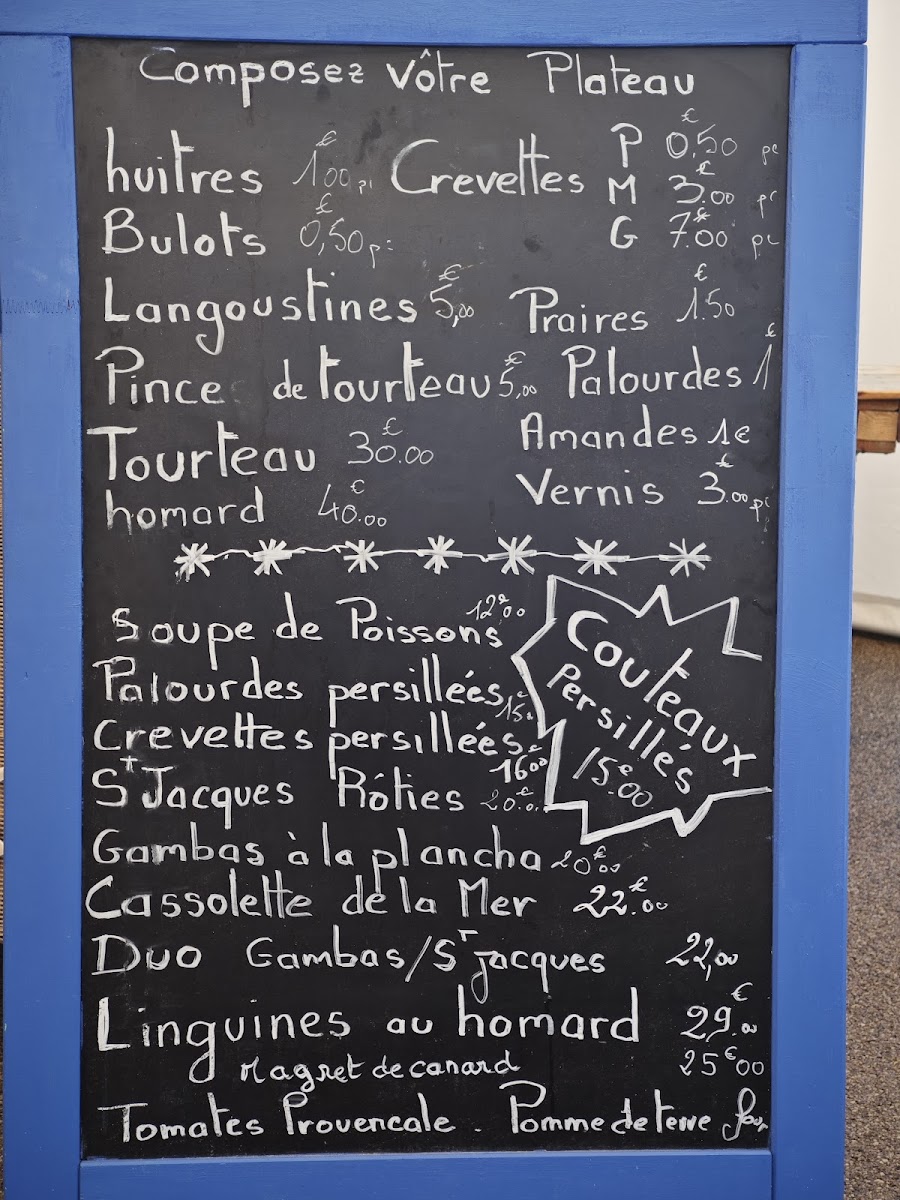 Composez vôtre Plateau
huitres 1€00 Crevettes P 0,50€ pc
M 3€.00 pc
Bulots 0,50€ G 7€.00 pc
Langoustines 5€,00 Praires 1€.50
Pince de tourteau 5€,00 Palourdes 1€
Tourteau 30€.00 Amandes 1€
homard 40€.00 Vernis 3€.00
Soupe de Poissons 12€,00
Palourdes persillées 15€
Crevettes persillées 16€00
St Jacques Rôties 20€
Couteaux
Persillés
15€.00
Gambas à la plancha 20€00
Cassolette de la Mer 22€.00
Duo Gambas/St jacques 22,00
Linguines au homard 29€.00
Magret de canard 25€00
Tomates Provencale . Pomme de terre